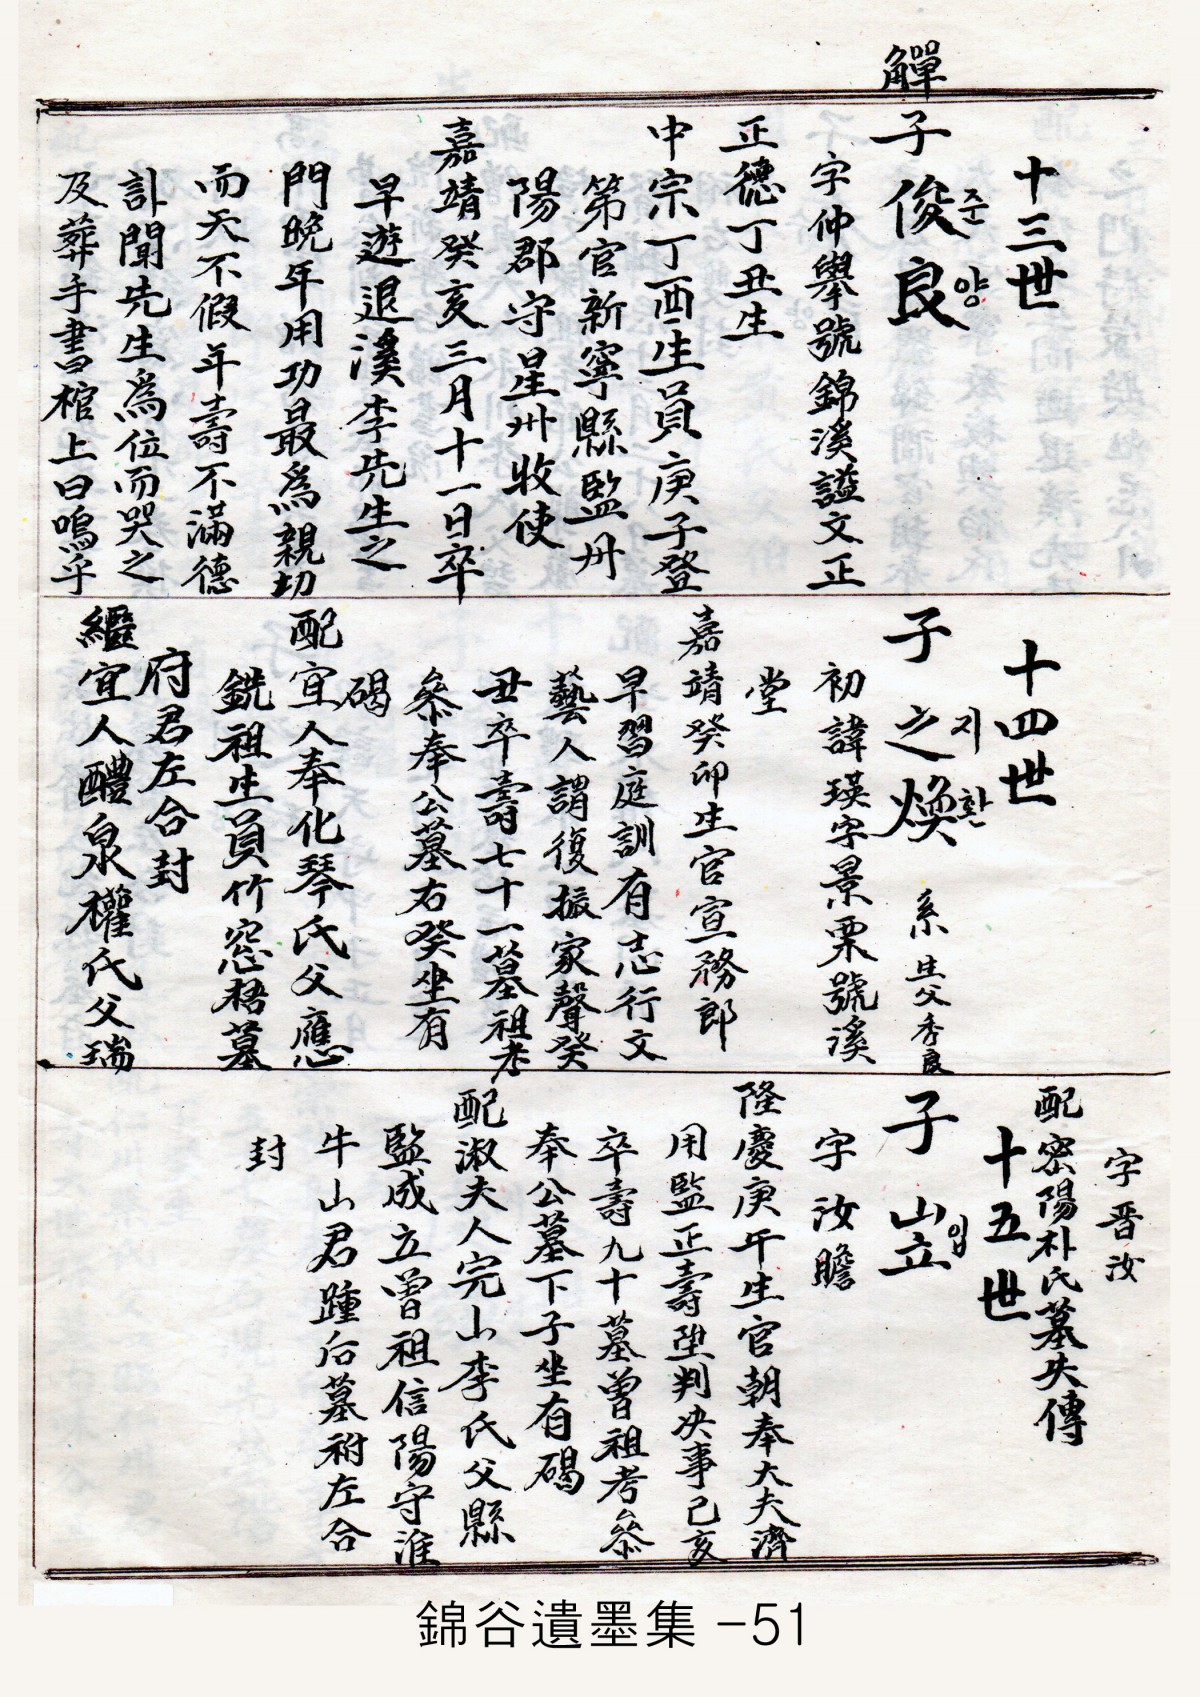 觶
十三世
子俊良
준양
字仲擧號錦溪諡文正
正德丁丑生
中宗丁酉生員庚子登
第官新寧縣監丹
陽郡守星州牧使
嘉靖癸亥三月十一日卒
早遊退溪李先生之
門晩年用功最爲親切
而天不假年壽不滿德
訃聞先生爲位而哭之
及葬手書棺上曰嗚乎
十四世
子之煥
지환
系生父秀良
初諱瑛字景栗號溪
堂
嘉靖癸卯生官宣務郎
早習庭訓有志行文
藝人謂復振家聲癸
丑卒壽七十一墓祖考
叅奉公墓右癸坐有
碣
配宜人奉化琴氏父應
銑祖生員竹窓梧墓
府君左合封
繼宜人醴泉權氏父瑞
字晋汝
配密陽朴氏墓失傳
十五世
子岦
입
字汝瞻
隆慶庚午生官朝奉大夫濟
用監正壽陞判决事己亥
卒壽九十墓曾祖考叅
奉公墓下子坐有碣
配淑夫人完山李氏父縣
監成立曾祖信陽守淮
牛山君踵后墓祔左合
封
錦谷遺墨集 -51